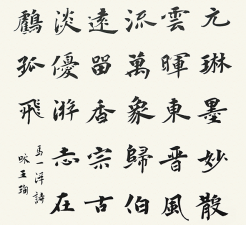 元琳墨妙散
雲暉東晉風
流萬象歸伯
遠留香宗古
淡優游志在
孤飛
馬一洋詩
詠王珣